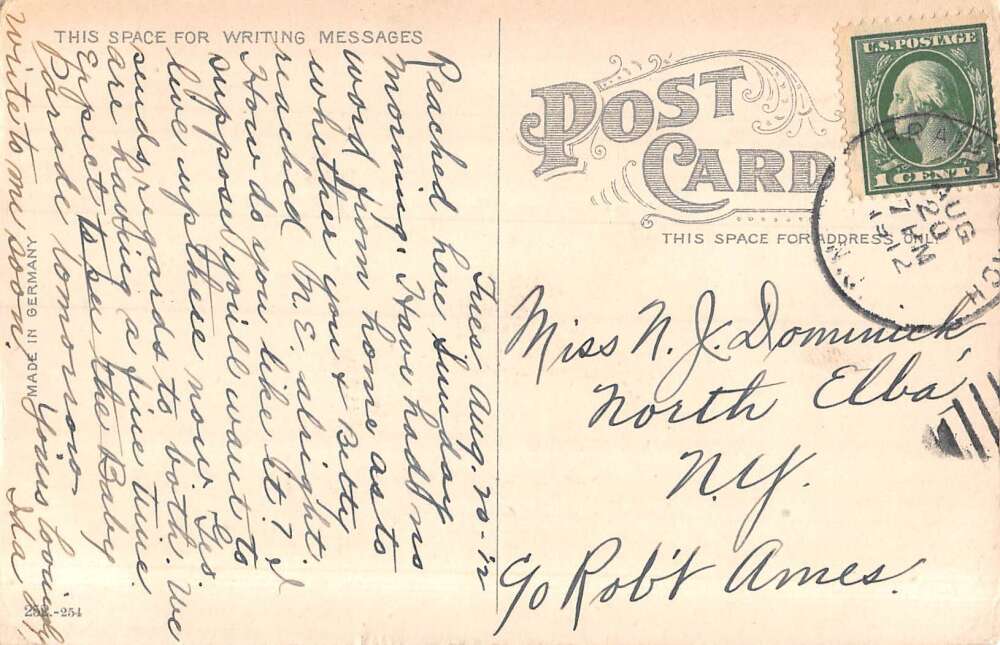 THIS SPACE FOR WRITING MESSAGES
Tues Aug. 20-12
Reached here Sunday
morning. Have had no
word from home as to
whither you & Betty
reached N.E. alright.
How do you like it? I
suppose you'll want to
live up there now. Geo.
sends regards to both. We
are having a fine time.
Expect to see the Baby
Parade tomorrow.
Yours lovingly
Ida
write to me soon.
MADE IN GERMANY
252.-254
POST CARD
THIS SPACE FOR ADDRESS ONLY
U.S. POSTAGE
1 CENT 1
AUG
20
7 AM
1912
Miss N. J. Dominick,
North Elba,
N.Y.
c/o Rob't Ames.